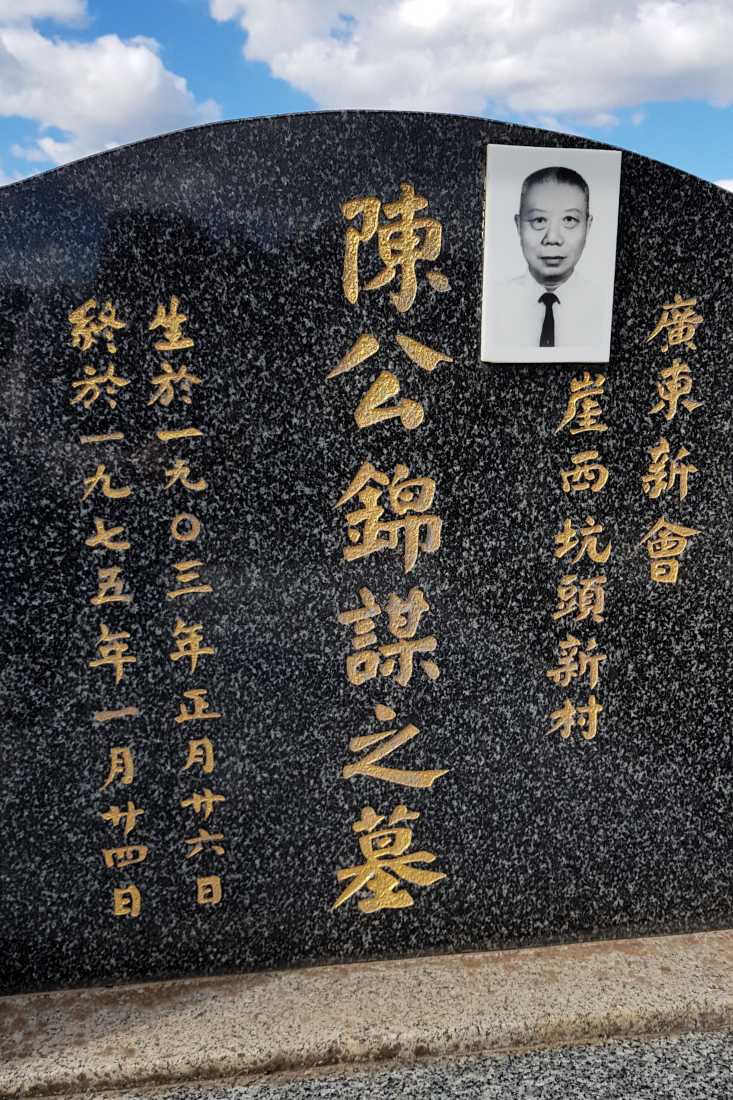 廣東新會
崖西坑頭新村
陳公錦謀之墓
生於一九〇三年正月廿六日
終於一九七五年一月廿四日